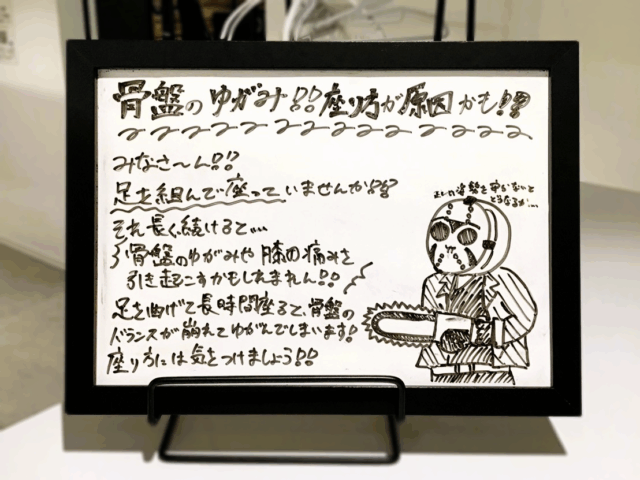 骨盤のゆがみ!!座り方が原因かも!!
みなさ〜ん!!
足を組んで座っていませんか!?
それ長く続けると…
骨盤のゆがみや膝の痛みを
引き起こすかもしれません!!
足を曲げて長時間座ると、骨盤の
バランスが崩れてゆがんでしまいます!
座り方には気をつけましょう!!
姿勢を
どうなるか…